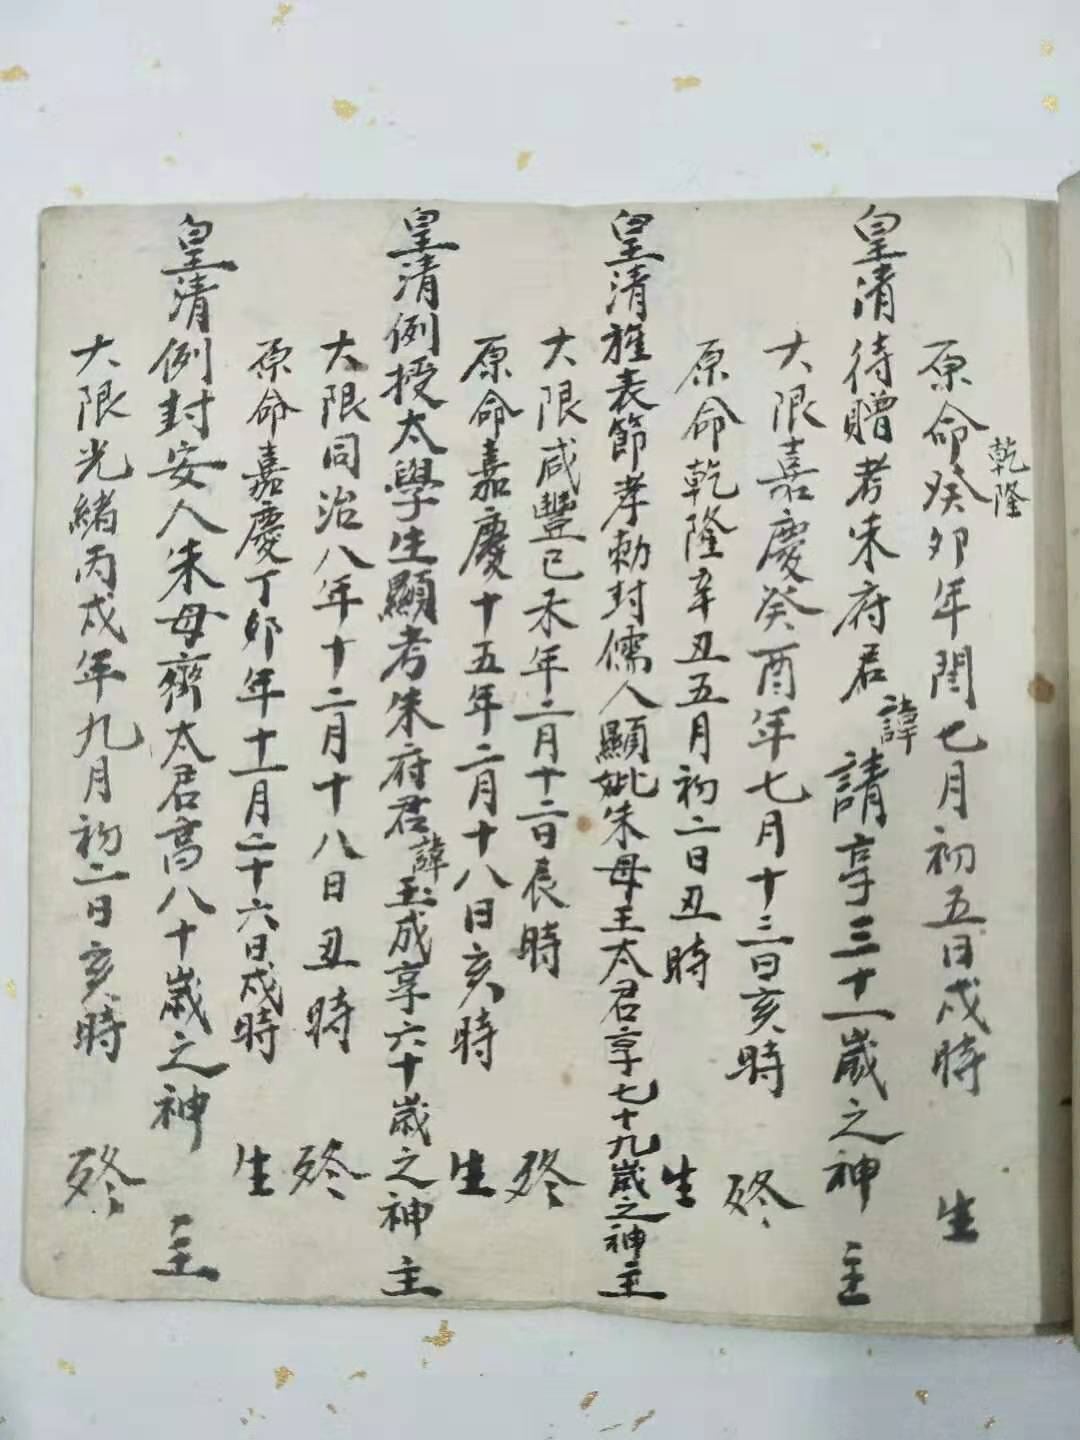 乾隆
原命癸卯年閏七月初五日戌時 生
皇清待贈考朱府君諱請享三十一歲之神主
大限嘉慶癸酉年七月十三日亥時 殁
原命乾隆辛丑五月初二日丑時 生
皇清旌表節孝勅封儒人顯妣朱母王太君享七十九歲之神主
大限咸豐己未年二月十二日辰時 殁
原命嘉慶十五年二月十八日亥時 生
皇清例授太學生顯考朱府君諱玉成享六十歲之神主
大限同治八年十二月十八日丑時 殁
原命嘉慶丁卯年十一月二十六日戌時 生
皇清例封安人朱母齊太君高八十歲之神主
大限光緒丙戌年九月初二日亥時 殁